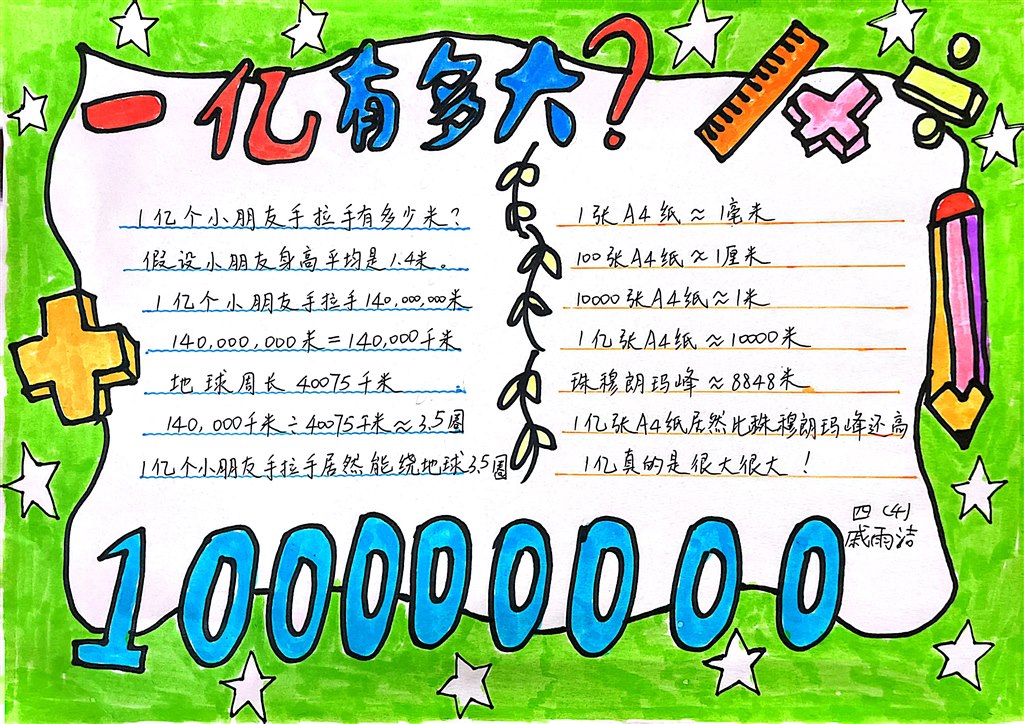 一亿有多大?
1亿个小朋友手拉手有多少米?
假设小朋友身高平均是1.4米。
1亿个小朋友手拉手140,000,000米
140,000,000米=140,000千米
地球周长 40075千米
140,000千米÷40075千米≈3.5圈
1亿个小朋友手拉手居然能绕地球3.5圈
1张A4纸≈1毫米
100张A4纸≈1厘米
10000张A4纸≈1米
1亿张A4纸≈10000米
珠穆朗玛峰≈8848米
1亿张A4纸居然比珠穆朗玛峰还高
1亿真的是很大很大!
四(4)
戚雨洁
100000000